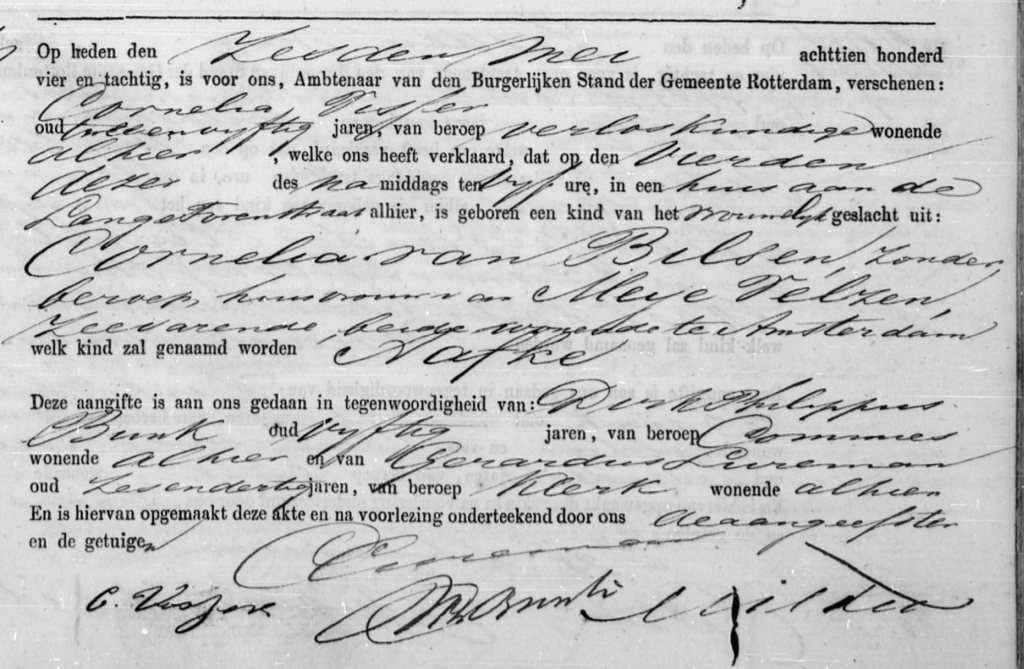 Op heden den Zesden Mei achttien honderd
vier en tachtig, is voor ons, Ambtenaar van den Burgerlijken Stand der Gemeente Rotterdam, verschenen:
Cornelia Visser
oud vyftig jaren, van beroep verloskundige wonende
alhier, welke ons heeft verklaard, dat op den Vierden
dezer des na middags ten vyf ure, in een huis aan de
Lange Torenstraat alhier, is geboren een kind van het vrouwelyk geslacht uit:
Cornelia van Bilsen, zonder
beroep, huisvrouw van Meye Velzen,
Zeevarende, beide wonende te Amsterdam
welk kind zal genaamd worden Aafke
Deze aangifte is aan ons gedaan in tegenwoordigheid van: Dirk Philippus
Bunk oud vyftig jaren, van beroep Commies
wonende alhier en van Gerardus Lureman
oud Zesendertig jaren, van beroep Klerk wonende alhier
En is hiervan opgemaakt deze akte en na voorlezing onderteekend door ons de aangeefster
en de getuigen
C. Visser